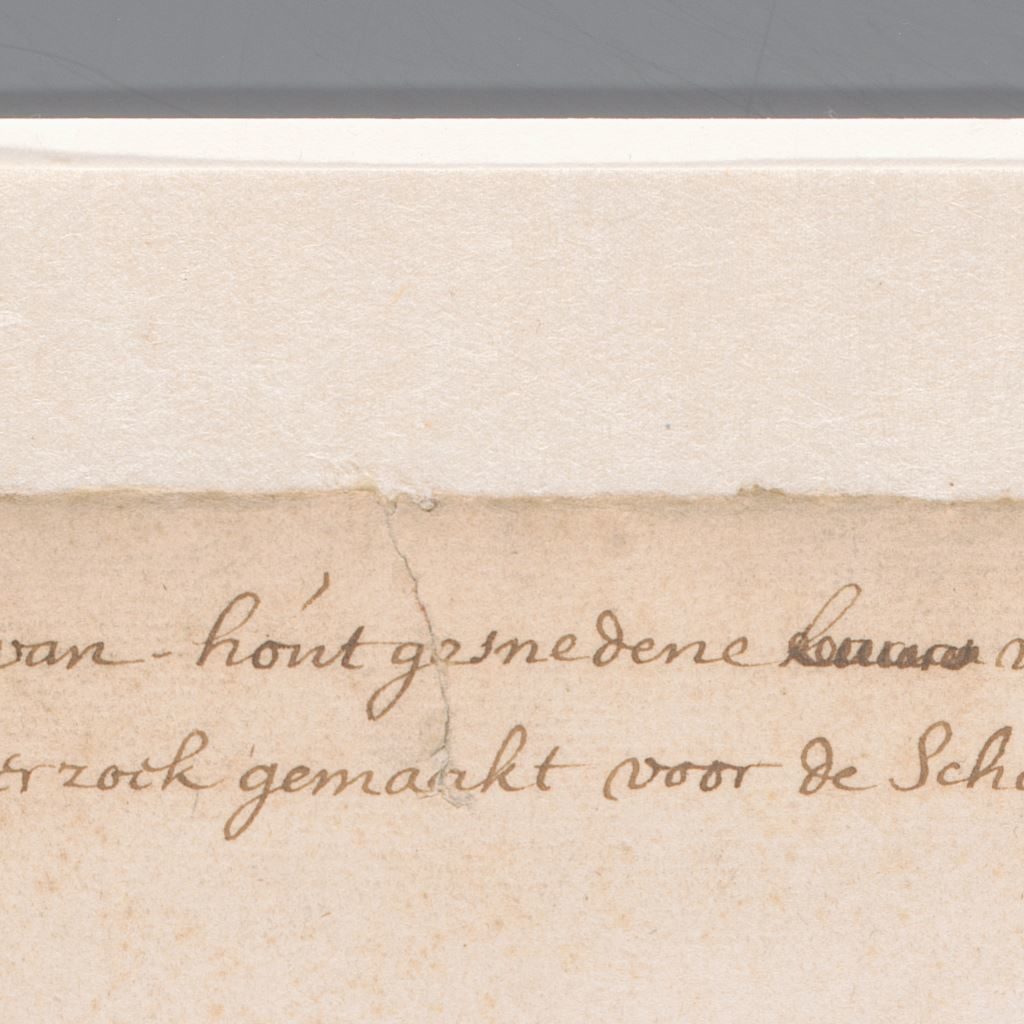 van - hóut gesnedene
erzoek gemaakt voor de Scho